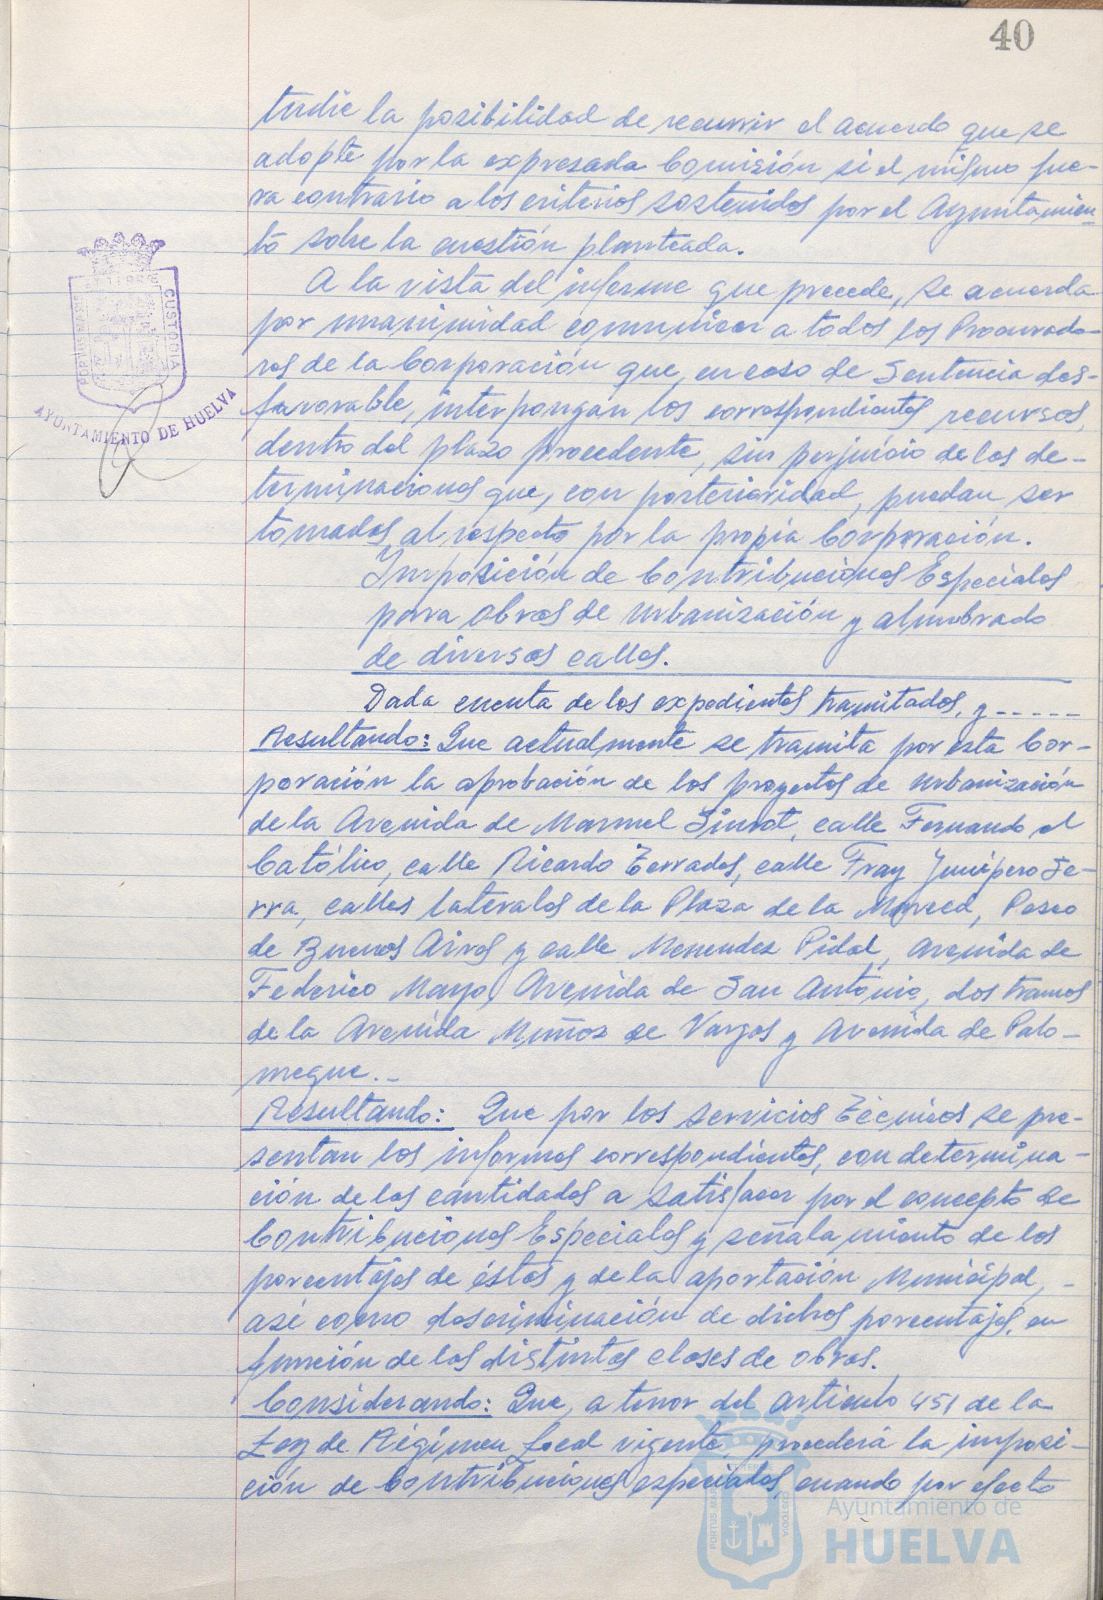 40
tudie la posibilidad de recurrir el acuerdo que se
adopte por la expresada Comisión si el mismo fue-
ra contrario a los criterios sostenidos por el Ayuntamien-
to sobre la cuestión planteada.
A la vista del informe que precede, se acuerda
por unanimidad comunicar a todos los Procurado-
res de la Corporación que, en caso de Sentencia des-
favorable, interpongan los correspondientes recursos,
dentro del plazo procedente, sin perjuicio de las de-
terminaciones que, con posterioridad, puedan ser
tomadas al respecto por la propia Corporación.
Imposición de Contribuciones Especiales
para obras de urbanización y alumbrado
de diversas calles.
Dada cuenta de los expedientes tramitados, y -----
Resultando: Que actualmente se tramita por esta Cor-
poración la aprobación de los proyectos de urbanización
de la Avenida de Manuel Siurot, calle Fernando el
Católico, calle Ricardo Terrades, calle Fray Junípero Se-
rra, calles laterales de la Plaza de la Merced, Paseo
de Buenos Aires y calle Menendez Pidal, avenida de
Federico Mayo, Avenida de San Antonio, dos tramos
de la Avenida Muñoz de Vargas y Avenida de Palo-
meque.-
Resultando: Que por los servicios Técnicos se pre-
sentan los informes correspondientes, con determina-
ción de las cantidades a satisfacer por el concepto de
Contribuciones Especiales y señalamiento de los
porcentajes de éstas y de la aportación Municipal,-
asi como discriminación de dichos porcentajes, en
función de las distintas clases de obras.
Considerando: Que, a tenor del artículo 451 de la
Ley de Régimen Local vigente, procederá la imposi-
ción de Contribuciones especiales, cuando por efecto
PORTUS MARIS
CUSTODIA
AYUNTAMIENTO DE HUELVA
PORTUS MARIS
CUSTODIA
Ayuntamiento de
HUELVA